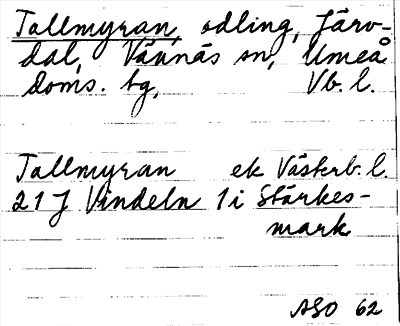 Tallmyran, odling, Järv-
dal, Vännäs sn, Umeå
doms. bg, Vb. l.
Tallmyran ek Västerb. l.
21 J Vindeln 1 i Stärkes-
mark
ASO 62